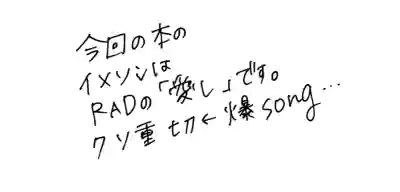 今回の本の
イメソンは
RADの「愛し」です。
クソ重 切←爆song…